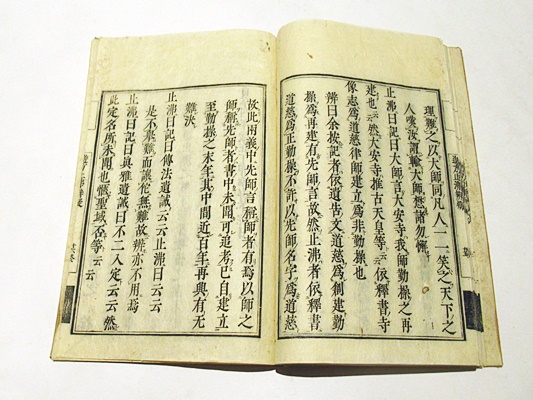 理觀之以大師同凡人一一笑之天下之
人嘆汝謂輪大師愁諸勿懈
止沸曰記曰大師言大安寺我師勤操之再
建也云云然大安寺推古天皇等云云依釋書寺
像志爲道慈律師建立爲非勤操也
辨曰余按記者依遺古文道慈爲創建勤
操爲再建有先師言故然止沸者依釋書
道慈爲正勤操不許以先師名字爲道慈
故此兩義中先師言稱師者有焉以師之
師稱先師者書中未聞可追考已自建立
至勤操之末年其中間近百年再興有无
難決
止沸曰記曰傳法遺誡云云止沸曰云云
是不異難而讓佗無難故辨亦不用焉
止沸曰記曰眞雅遺誡曰不二入定云云然
此定名所未聞也慨聖域否等云云